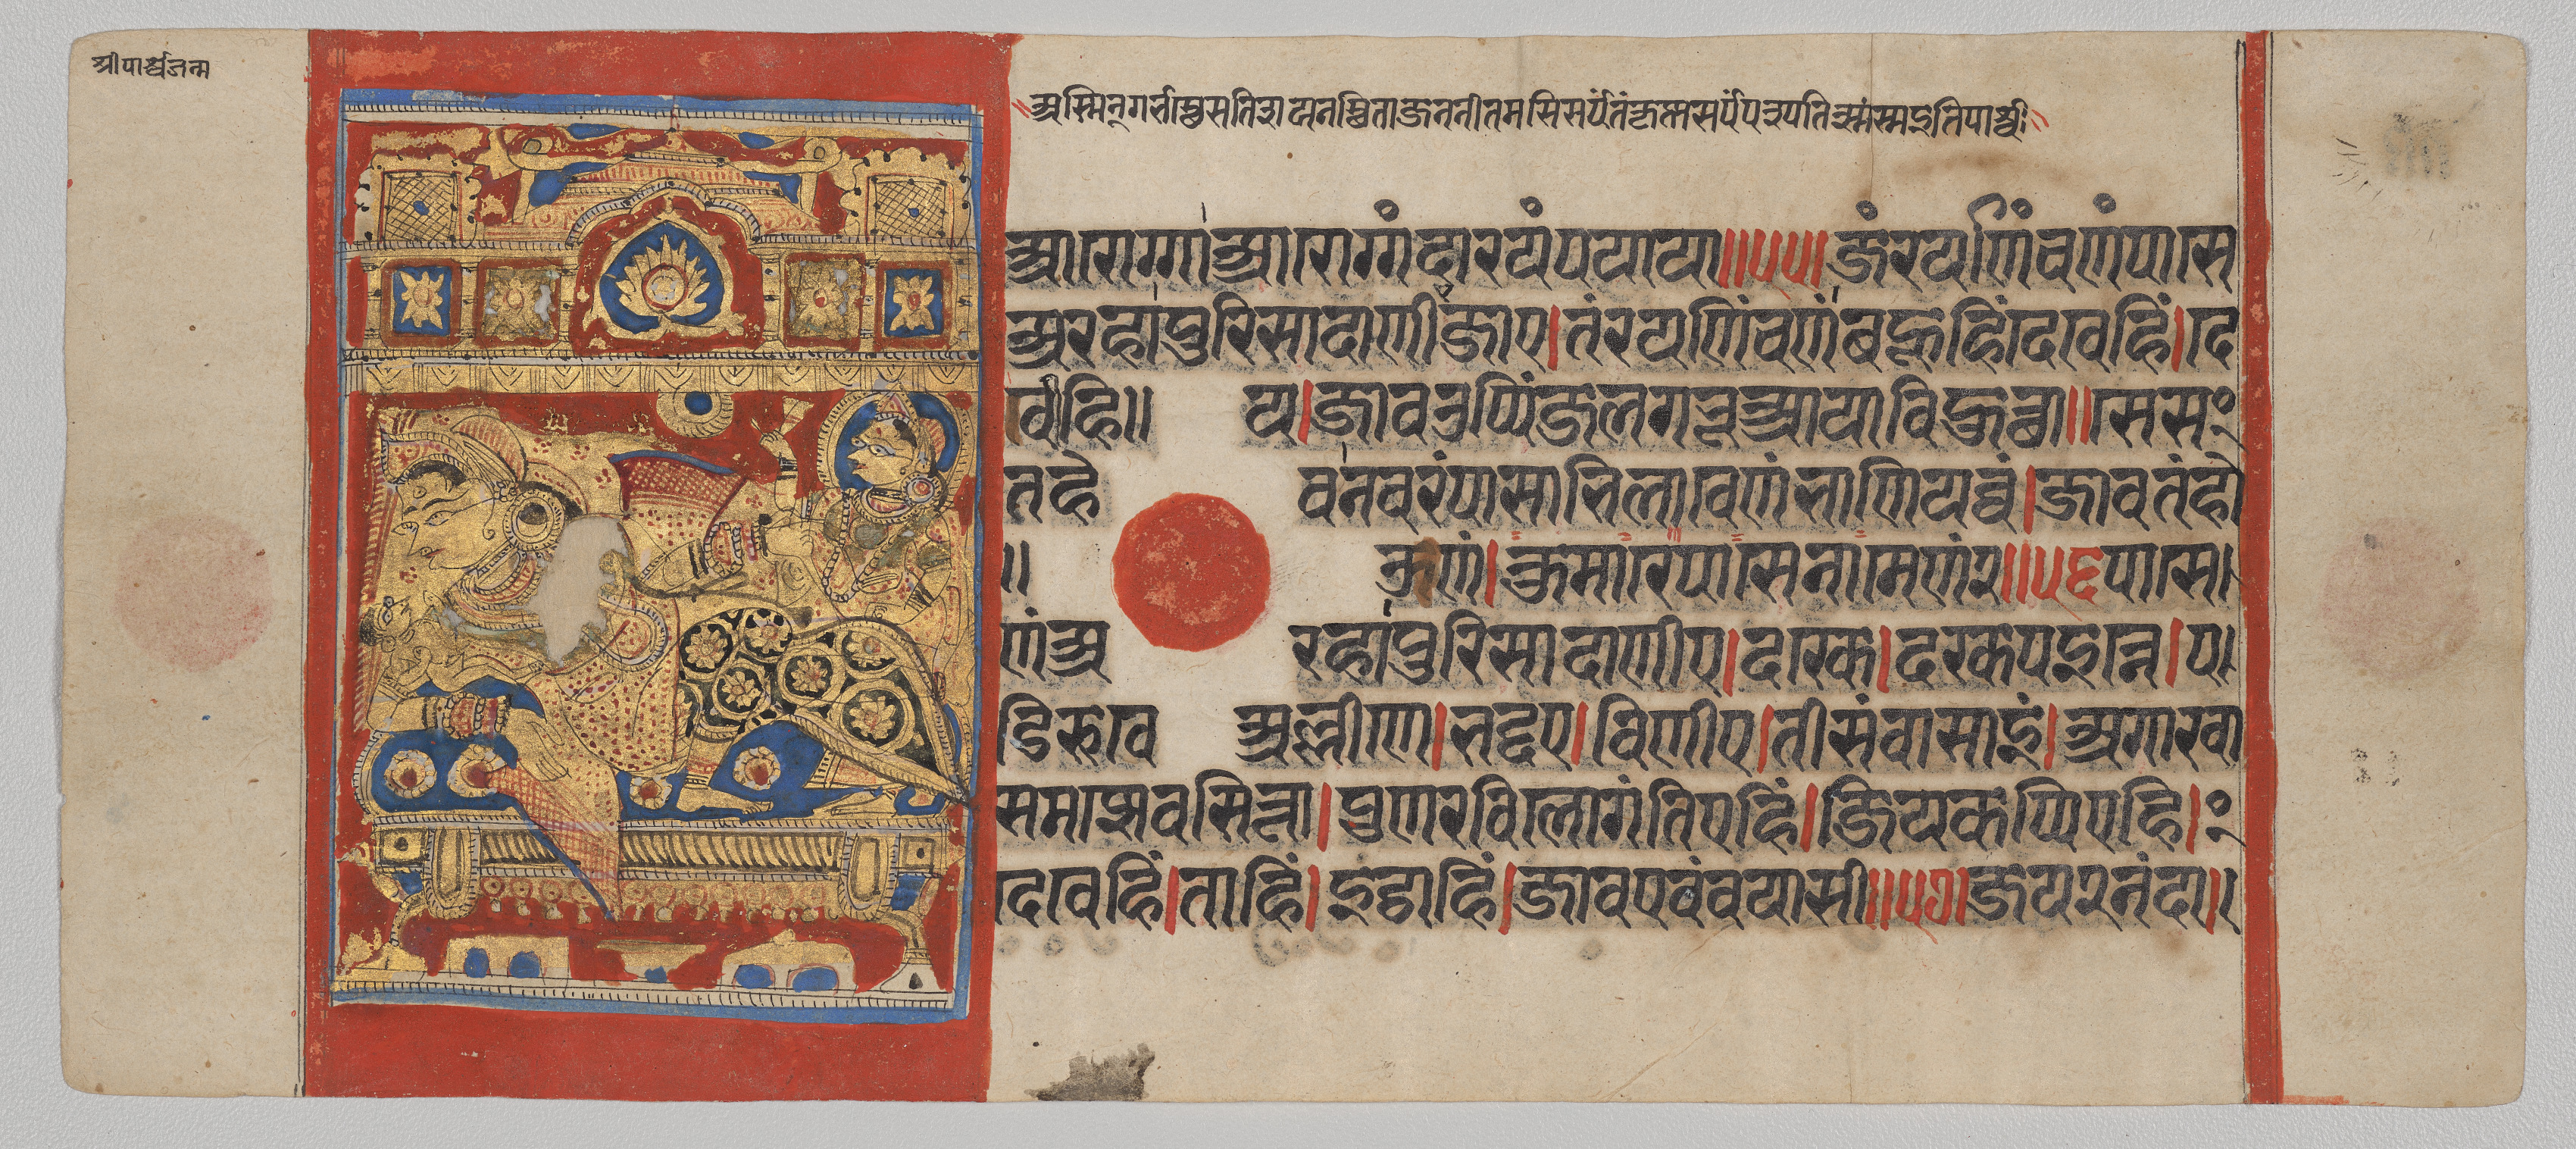 श्रीपार्श्वजन्म
अस्मिन्गर्भस्थे सति शयनस्थिता जननी तमसि सर्पंतं कृष्णसर्पं पश्यति स्म
आरोग्गा आरोग्गं दारयं पयाया॥५५॥जं रयणिं च णं पासे
अरहा पुरिसादाणीए जाए।तं रयणिं च णं बहूहिं देवेहिं।दे
वीहि॥ य।जाव उप्पिंजलगभूआ यावि हुत्था॥सेसं
तहेव नवरं पासाभिलावेणं भाणियव्वं।जाव तं हो
॥ऊणं।कुमारे पासे नामेणं२॥५६पासे
णं अरहा पुरिसादाणीए।दक्खे।दक्खपइन्ने।प
डिरूवे अल्लीणे।भद्दए।विणीए।तीसं वासाइं।अगारवा
समज्झे वसित्ता।पुणरवि लोगंतिएहिं।जियकप्पिएहि।
देवेहिं।ताहिं।इट्ठाहिं।जाव एवं वयासी॥५७।जय२नंदा॥